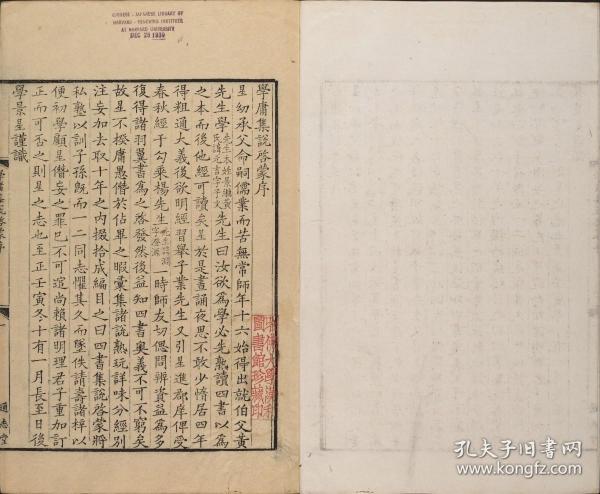 CHINESE - JAPANESE LIBRARY OF
HARVARD - YENCHING INSTITUTE
AT HARVARD UNIVERSITY
DEC 26 1939
學庸集說啓蒙序
星幼承父命嗣儒業而苦無常師年十六始得出就伯父黃
先生學先生本姓景繼黃氏諱元吉字子文先生曰汝欲為學必先熟讀四書以為
之本而後他經可讀矣星於是晝誦夜思不敢少惰居四年
得粗通大義後欲明經習舉子業先生又引星進郡庠俾受
春秋經于勾乘楊先生一時師友切偲問辨資益為多
復得諸羽翼書為之啓發然後益知四書奧義不可不窮矣
故星不揆庸愚僭於佔畢之暇彙集諸說熟玩詳味分經別
注妄加去取十年之内掇拾成編目之曰四書集說啓蒙將
私塾以訓子孫既而一二同志懼其久而墜佚請壽諸梓以
便初學顧星僭妄之罪已不可逭尚賴諸明理君子重加訂
正而可否之則星之志也至正壬寅冬十有一月長至日後
學景星謹識
一
通志堂
圖書館珍藏印
孔夫子旧书网
kongfz.com